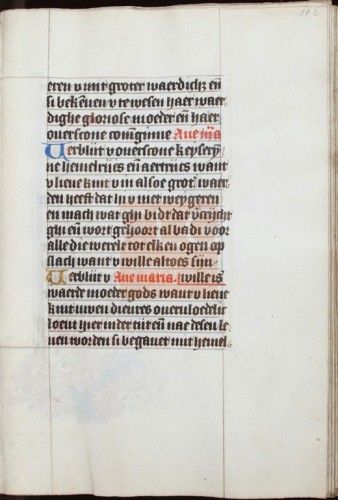 186
eren v mit groter waerdich; eñ
si bekennen v te wesen haer waer
dighe gloriose moeder eñ haer
ouerscone coninginne Aue m̄a
Verblijt v ouerscone keyserȳ
ne hemelrijcs eñ aertrijcs want
v lieue kint v in alsoe grot waer
den heeft dat hi v niet weygeren
en mach wat ghi bidt dat v̓crijcht
ghi eñ wort gehoort al ba di voor
alle die werelt tot elken ogen op
slach want v wille altoes sijn
Verblijt v Aue maria wille is
waerde moeder gods want v lieue
kint uwen dienres oueruloedelic
loent hier inder tijt eñ nae desen le
uen worden si begauet mit hemel